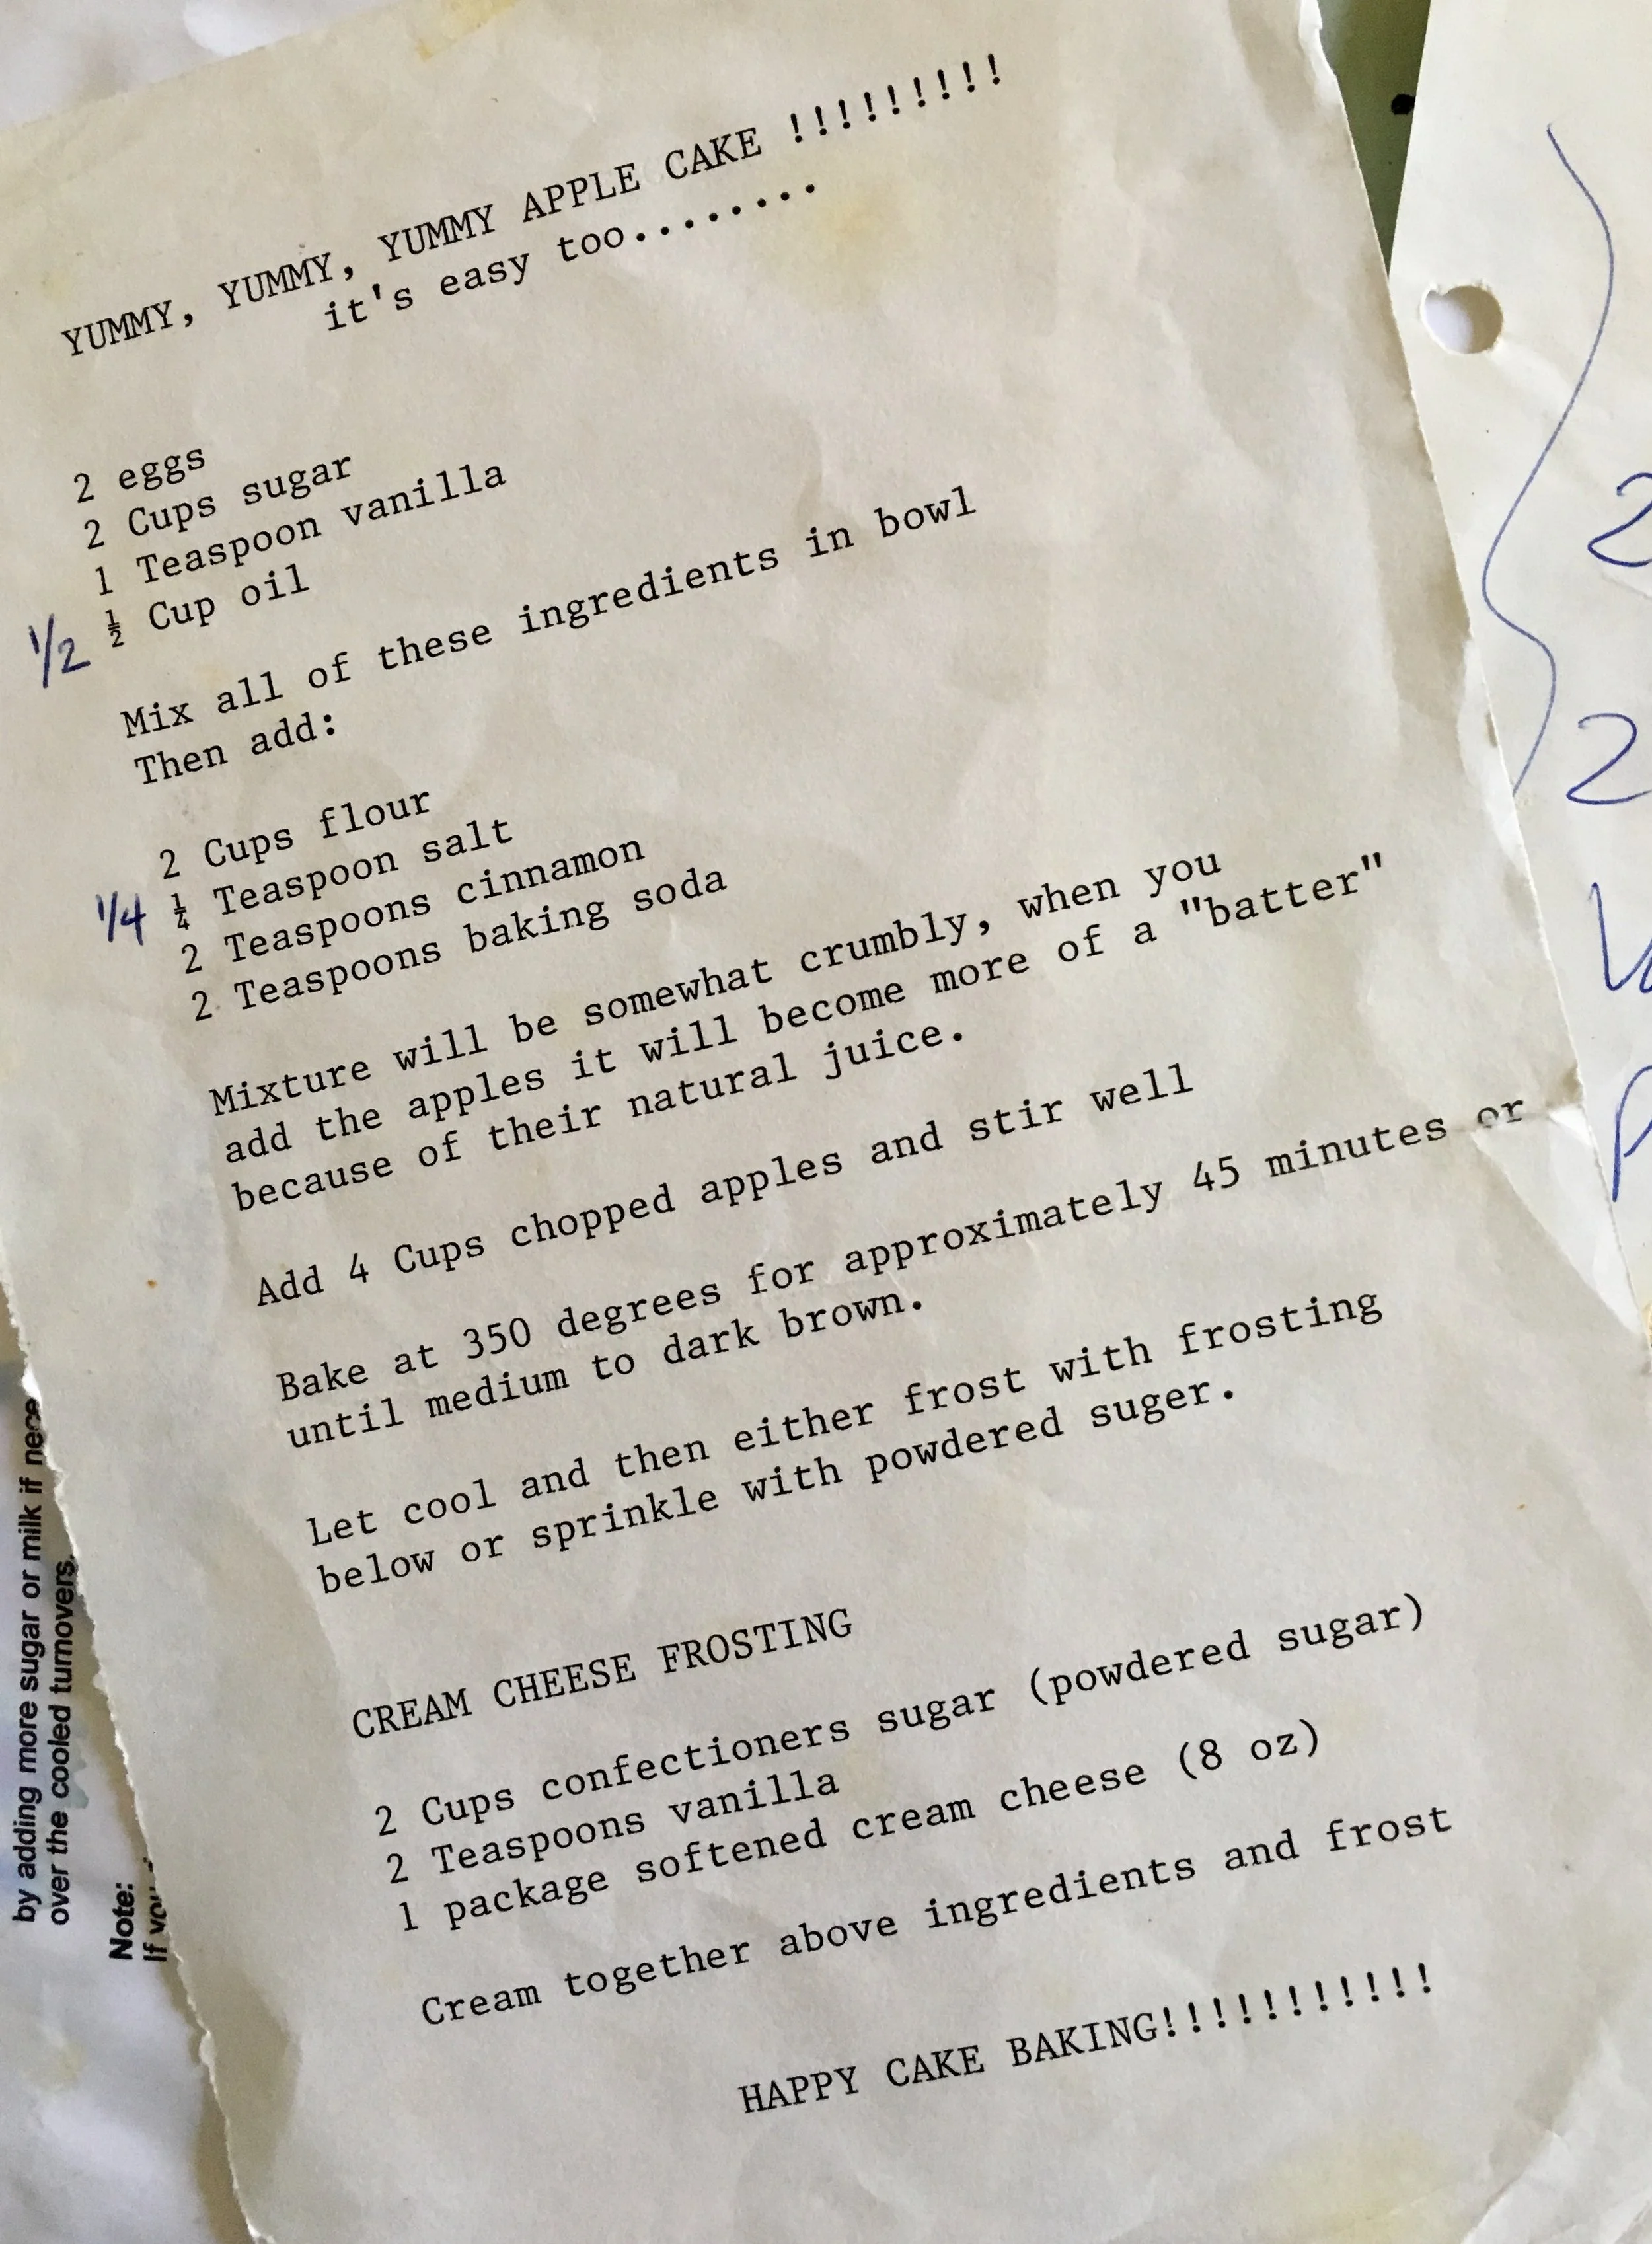 YUMMY, YUMMY, YUMMY APPLE CAKE !!!!!!!!!
it's easy too........
2 eggs
2 Cups sugar
1 Teaspoon vanilla
1/2 ½ Cup oil
Mix all of these ingredients in bowl
Then add:
2 Cups flour
1/4 ¼ Teaspoon salt
2 Teaspoons cinnamon
2 Teaspoons baking soda
Mixture will be somewhat crumbly, when you
add the apples it will become more of a "batter"
because of their natural juice.
Add 4 Cups chopped apples and stir well
Bake at 350 degrees for approximately 45 minutes or
until medium to dark brown.
Let cool and then either frost with frosting
below or sprinkle with powdered suger.
CREAM CHEESE FROSTING
2 Cups confectioners sugar (powdered sugar)
2 Teaspoons vanilla
1 package softened cream cheese (8 oz)
Cream together above ingredients and frost
HAPPY CAKE BAKING!!!!!!!!!!!
by adding more sugar or milk if
over the cooled turnovers.
Note:
If
2
2